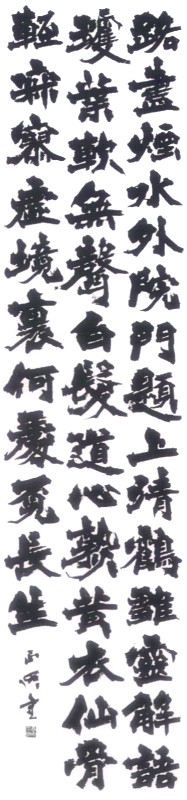 路盡煙水外院門題上清鶴雛靈解語
瓊葉軟無聲白髮道心熟黃衣仙骨
輕寂寥虛境裏何處覓長生